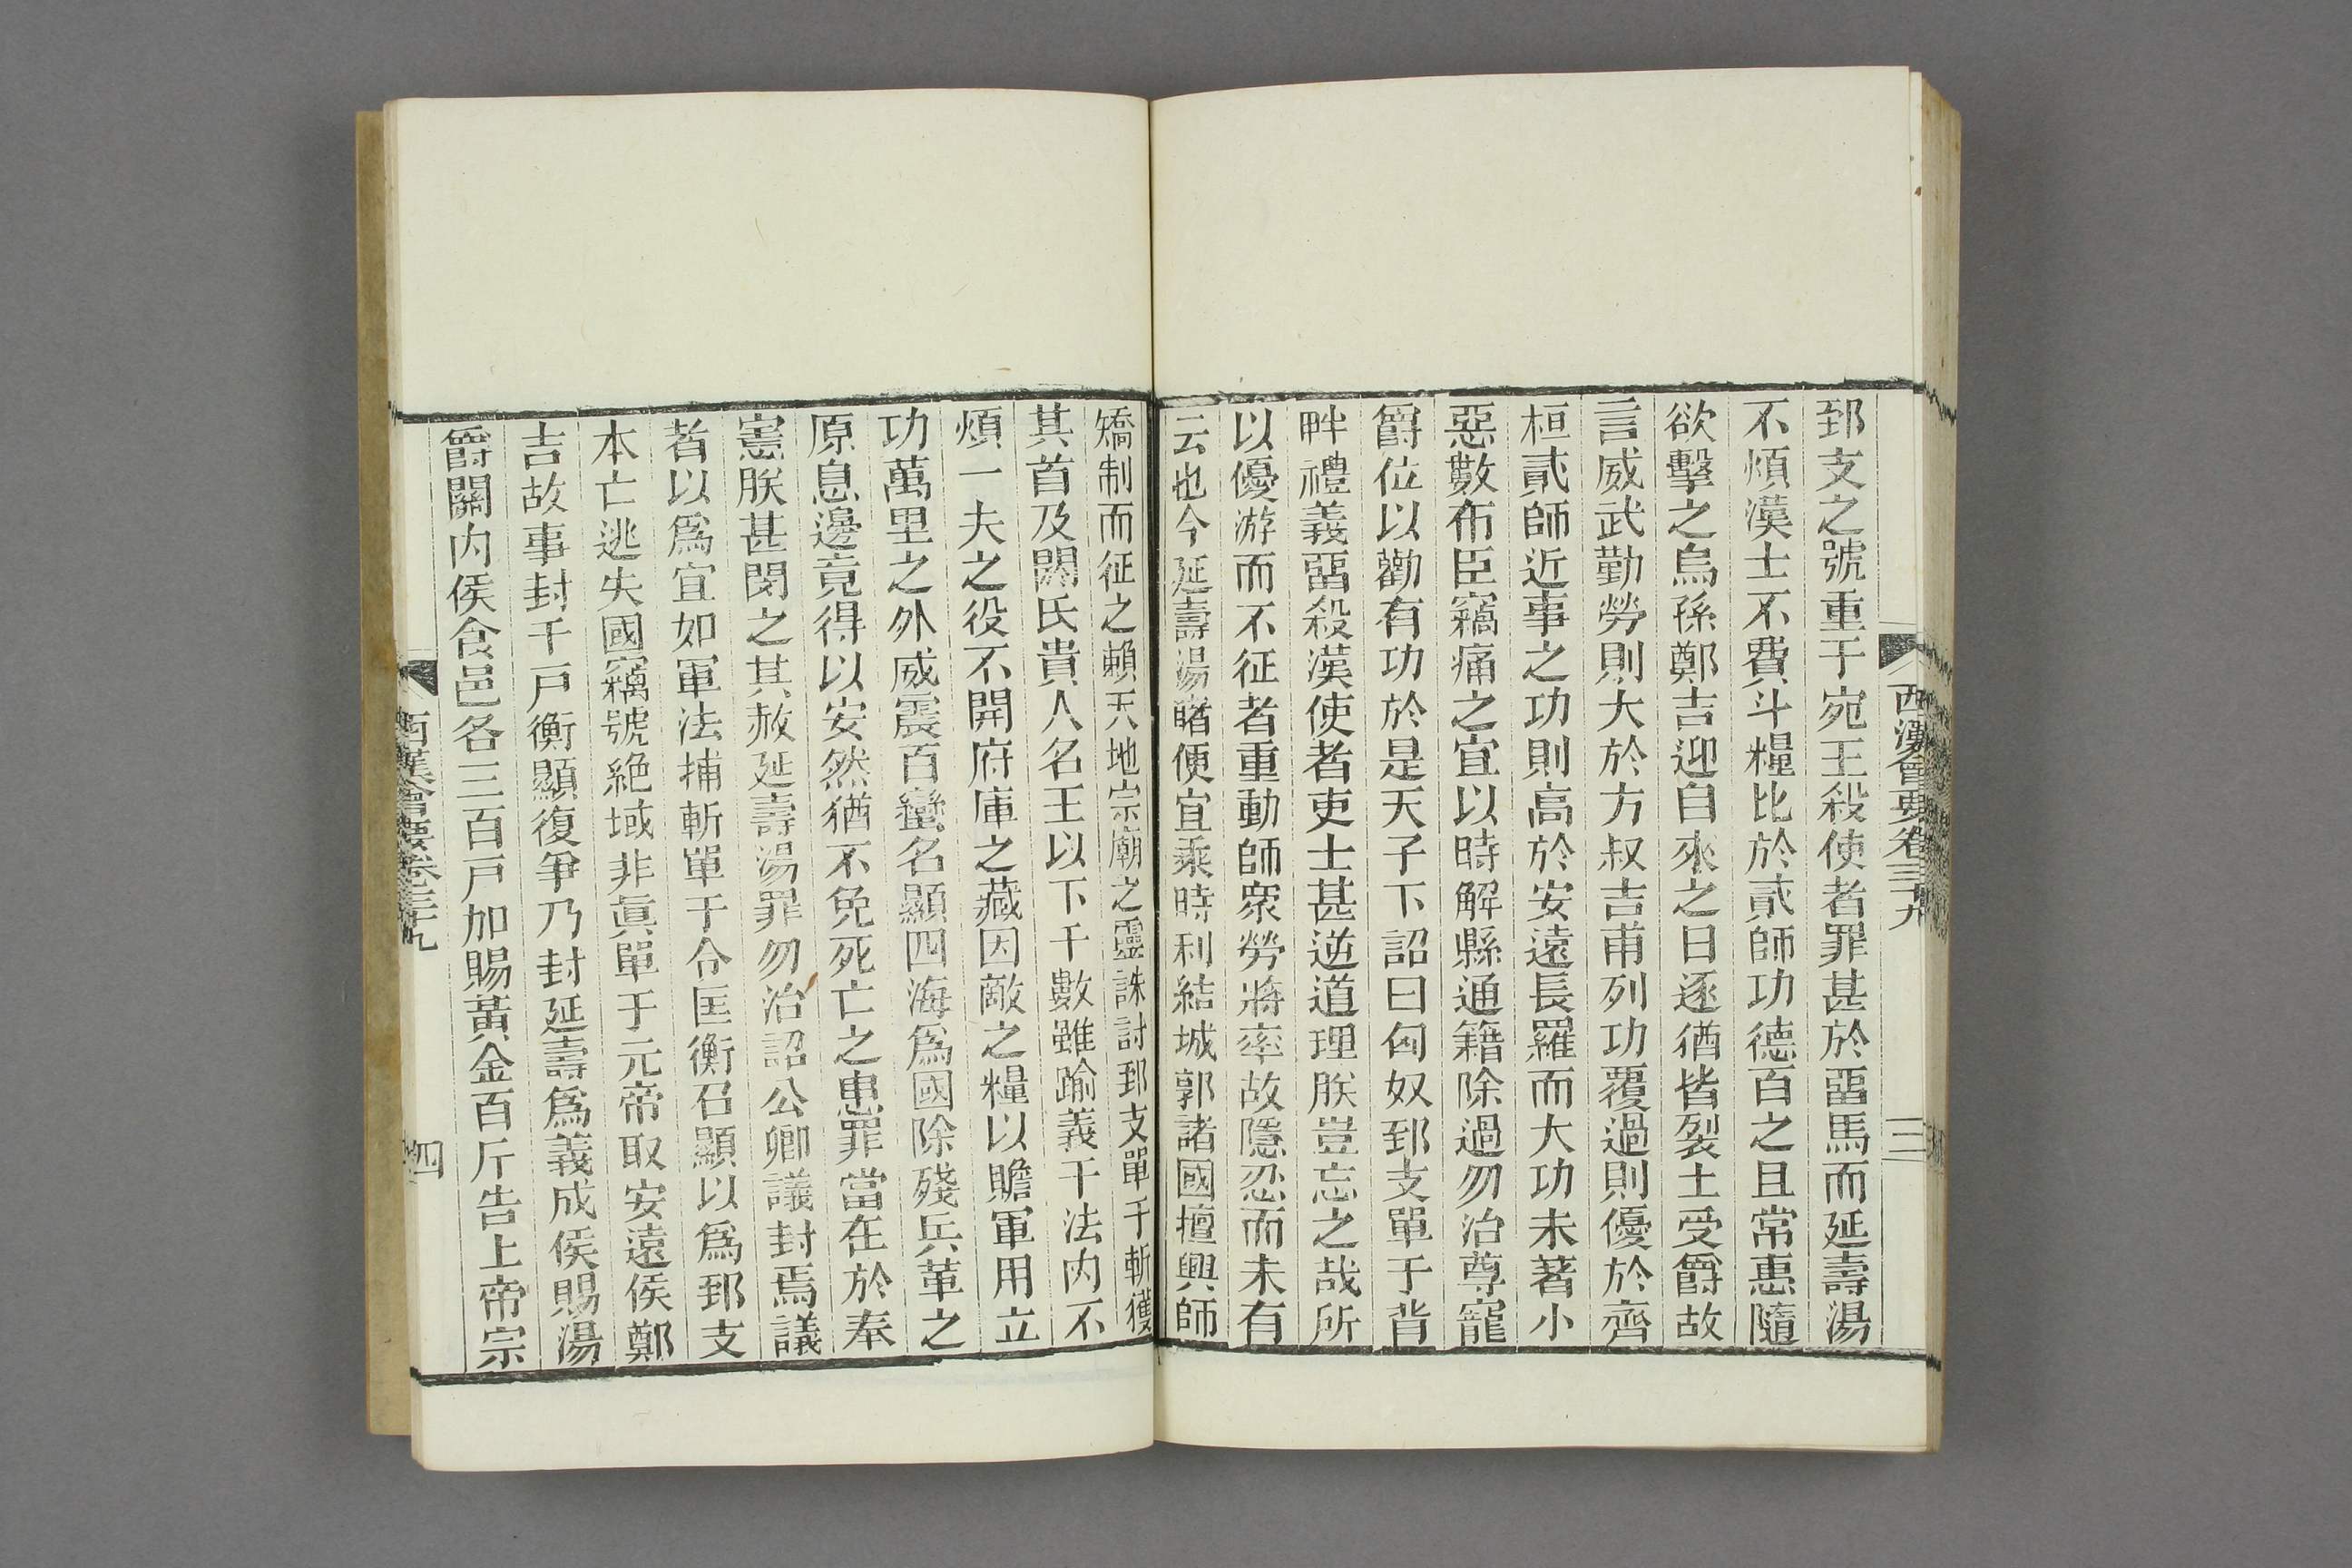 西漢會要卷三十九
三
郅支之號重于宛王殺使者罪甚於畱馬而延壽湯
不煩漢士不費斗糧比於貳師功德百之且常惠隨
欲擊之烏孫鄭吉迎自來之日逐猶皆裂土受爵故
言威武勤勞則大於方叔吉甫列功覆過則優於齊
桓貳師近事之功則高於安遠長羅而大功未著小
惡數布臣竊痛之宜以時解縣通籍除過勿治尊寵
爵位以勸有功於是天子下詔曰匈奴郅支單于背
畔禮義畱殺漢使者吏士甚逆道理朕豈忘之哉所
以優游而不征者重動師衆勞將率故隱忍而未有
云也今延壽湯睹便宜乘時利結城郭諸國擅興師
矯制而征之賴天地宗廟之靈誅討郅支單于斬獲
其首及閼氏貴人名王以下千數雖踰義干法內不
煩一夫之役不開府庫之藏因敵之糧以贍軍用立
功萬里之外威震百蠻名顯四海爲國除殘兵革之
原息邊竟得以安然猶不免死亡之患罪當在於奉
憲朕甚閔之其赦延壽湯罪勿治詔公卿議封焉議
者以爲宜如軍法捕斬單于令匡衡石顯以爲郅支
本亡逃失國竊號絶域非眞單于元帝取安遠侯鄭
吉故事封千戸衡顯復爭乃封延壽爲義成侯賜湯
爵關內侯食邑各三百戸加賜黃金百斤告上帝宗
西漢會要卷三十九
四